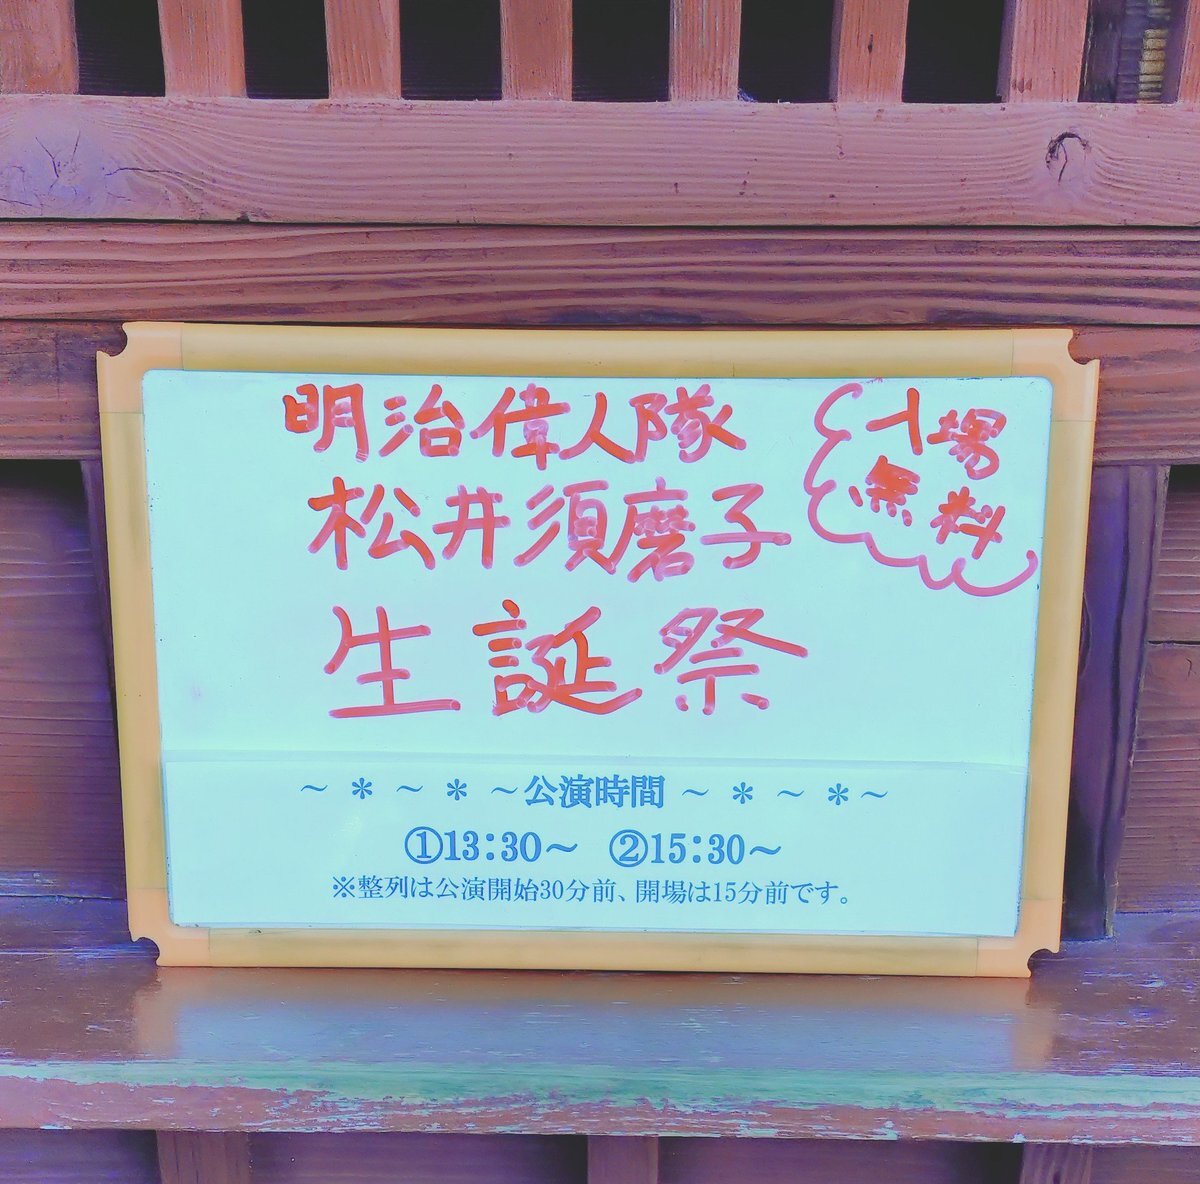 明治偉人隊
松井須磨子
生誕祭
入場
無料
～ ＊ ～ ＊ ～公演時間 ～ ＊ ～ ＊～
①13:30～ ②15:30～
※整列は公演開始30分前、開場は15分前です。